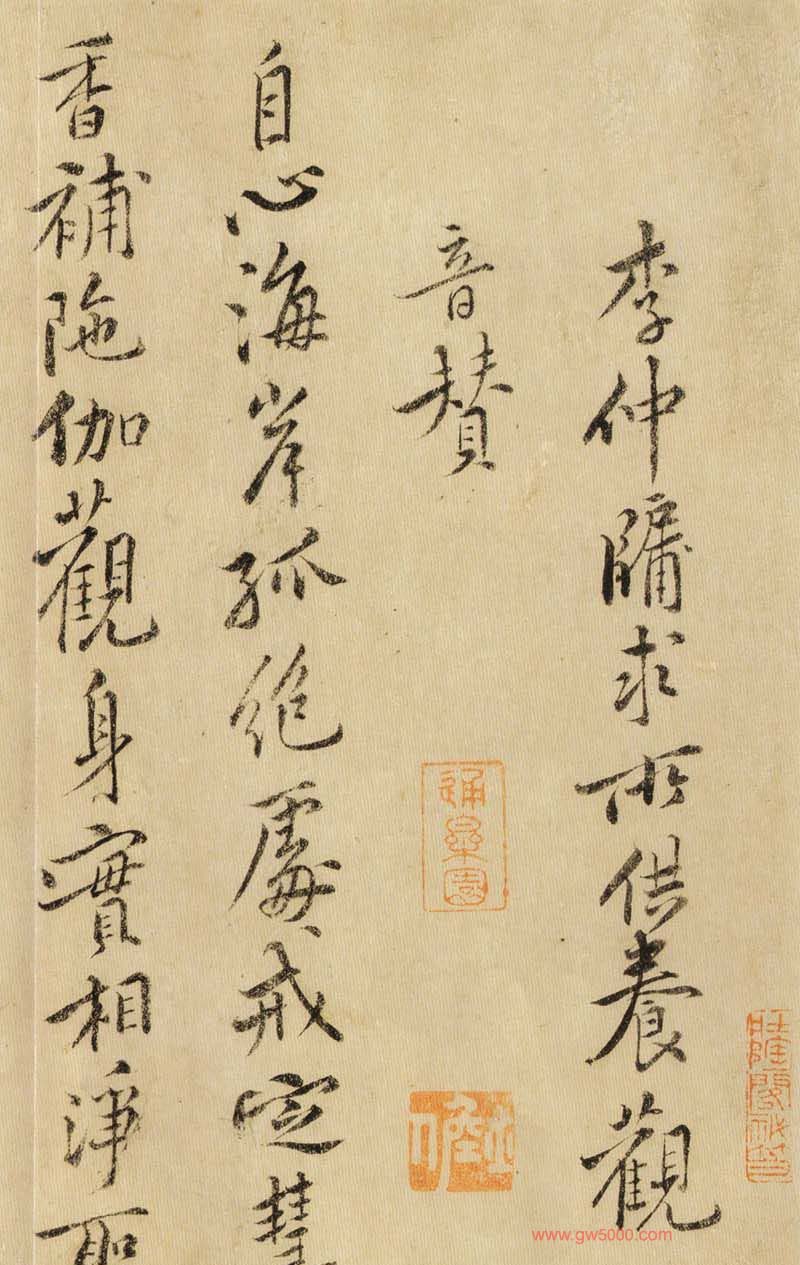 李仲牖求所供養觀
音賛
自心海岸孤絕處戒定慧
香補陁伽觀身實相淨聖
www.gw5000.com